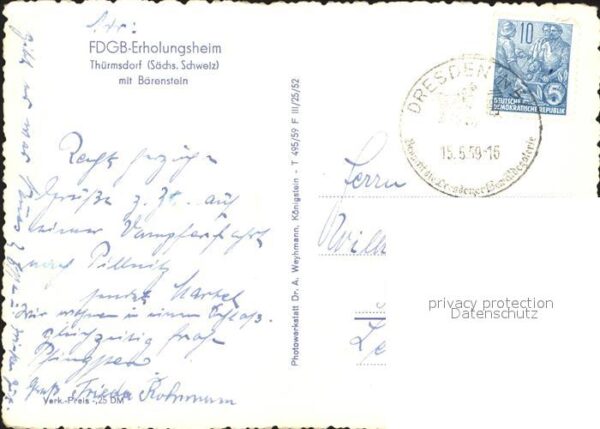 FDGB-Erholungsheim
Thürmsdorf (Sächs. Schweiz)
mit Bärenstein
Recht herzliche
Grüße z. Zt. auf
einer Dampferfahrt
nach Pillnitz
sendet
Wir wohnen in einem Schloß.
gleichzeitig frohe
Pfingsten
Gruß Frieda
Verk.-Preis -,25 DM
Photowerkstatt Dr. A. Weyhmann, Königstein - T 495/59 F III/25/52
10
5
DEUTSCHE
DEMOKRATISCHE REPUBLIK
DRESDEN
15.5.59-16
Besucht die Dresdener Gemäldegalerie
Herrn
privacy protection
Datenschutz